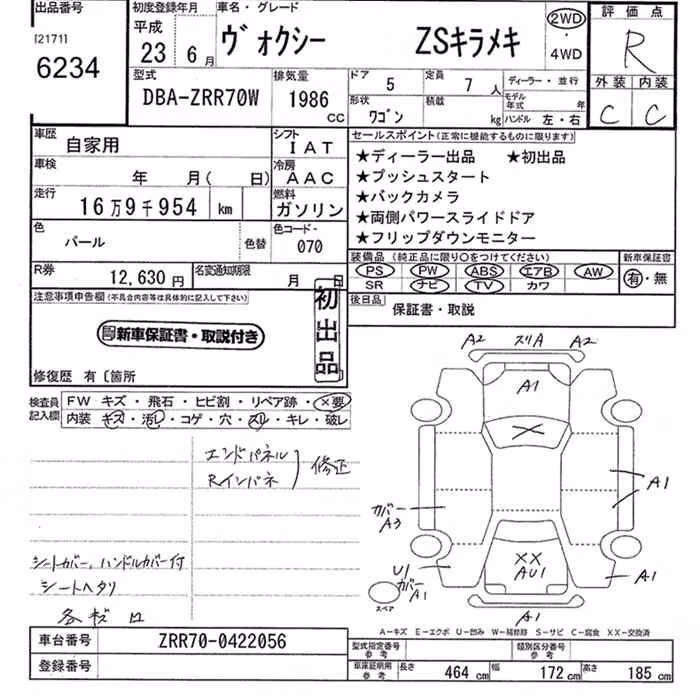 出品番号
[2171]
6234
初度登録年月
平成
23 6月
車名・グレード
ヴォクシー ZSキラメキ
2WD
・
4WD
評価点
R
外装 内装
C C
型式
DBA-ZRR70W
排気量
1986
CC
ドア 5
定員 7人
ディーラー・並行
形状 ワゴン
積載 kg
モデル年式 年
ハンドル 左・右
車歴 自家用
シフト IAT
車検 年 月( 日)
冷房 AAC
走行 16万9千954 km
燃料 ガソリン
色 パール 色替
色コード- 070
R券 12,630円
名変通知期限 月 日
セールスポイント(正常に機能するものに限ります)
★ディーラー出品 ★初出品
★プッシュスタート
★バックカメラ
★両側パワースライドドア
★フリップダウンモニター
装備品(純正品に限り○をつけてください)
PS PW ABS エアB AW
SR ナビ TV カワ
新車保証書
有・無
後日品 保証書・取説
注意事項申告欄(不具合内容等は具体的に記入して下さい)
新車保証書・取説付き
初出品
修復歴 有〔箇所
検査員記入欄
FW キズ・飛石・ヒビ割・リペア跡・×要
内装 キズ・汚レ・コゲ・穴・スレ・キレ・破レ
エンドパネル
Rインパネ
修正
シートカバー、ハンドルカバー付
シートヘタリ
A2 スリA A2
A1
×
A1
カバー
A3
U1
カバー
A1
××
AU1
A1
スペア
A1
A-キズ E-エクボ U-凹み W-補修跡 S-サビ C-腐食 XX-交換済
車台番号 ZRR70-0422056
登録番号
型式指定番号
参考
類別区分番号
参考
車庫証明用
参考
長さ 464 cm 幅 172 cm 高さ 185 cm